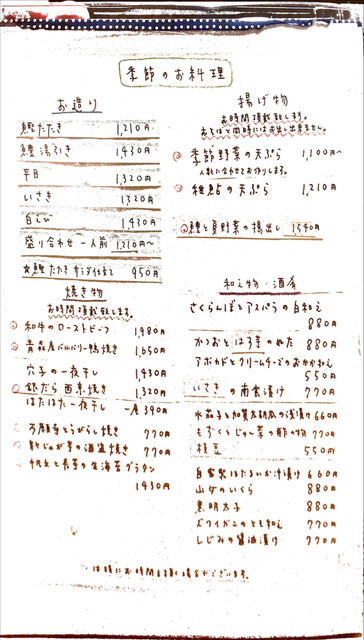 季節のお料理
お造り
鰹たたき 1,210円
鱧湯引き 1,430円
平目 1,320円
いさき 1320円
白えび 1,430円
盛り合わせ 一人前 1,210円〜
鰹たたき サラダ仕立て 950円
焼き物
お時間頂戴致します。
和牛のローストビーフ 1,980円
青森産バルバリー鴨焼き 1,650円
穴子の一夜干し 1,430円
銀だら西京焼き 1,320円
はたはた一夜干し 一尾390円
万願寺とうがらし焼き 770円
新じゃが芋の酒盗焼き 770円
帆立と長芋の生海苔グラタン
1430円
揚げ物
お時間頂戴致します。
季節野菜の天ぷら 1,100円〜
人数に合わせてお作りします。
稚鮎の天ぷら 1,210円
鱧と夏野菜の揚出し 1540円
和え物・酒肴
さくらんぼとアスパラの白和え
880円
かつおとほうり草のぬた 880円
アボカドとクリームチーズのおかか和え
550円
いさきの南蛮漬け 770円
水茄子と加賀太胡瓜の浅漬け 660円
もずくとじゅん菜の酢の物 770円
枝豆 550円
自家製ほたるいか沖漬け 660円
山女のいくら 880円
黒明太子 880円
ズワイガニのとも和え 770円
しじみの醤油漬け 770円